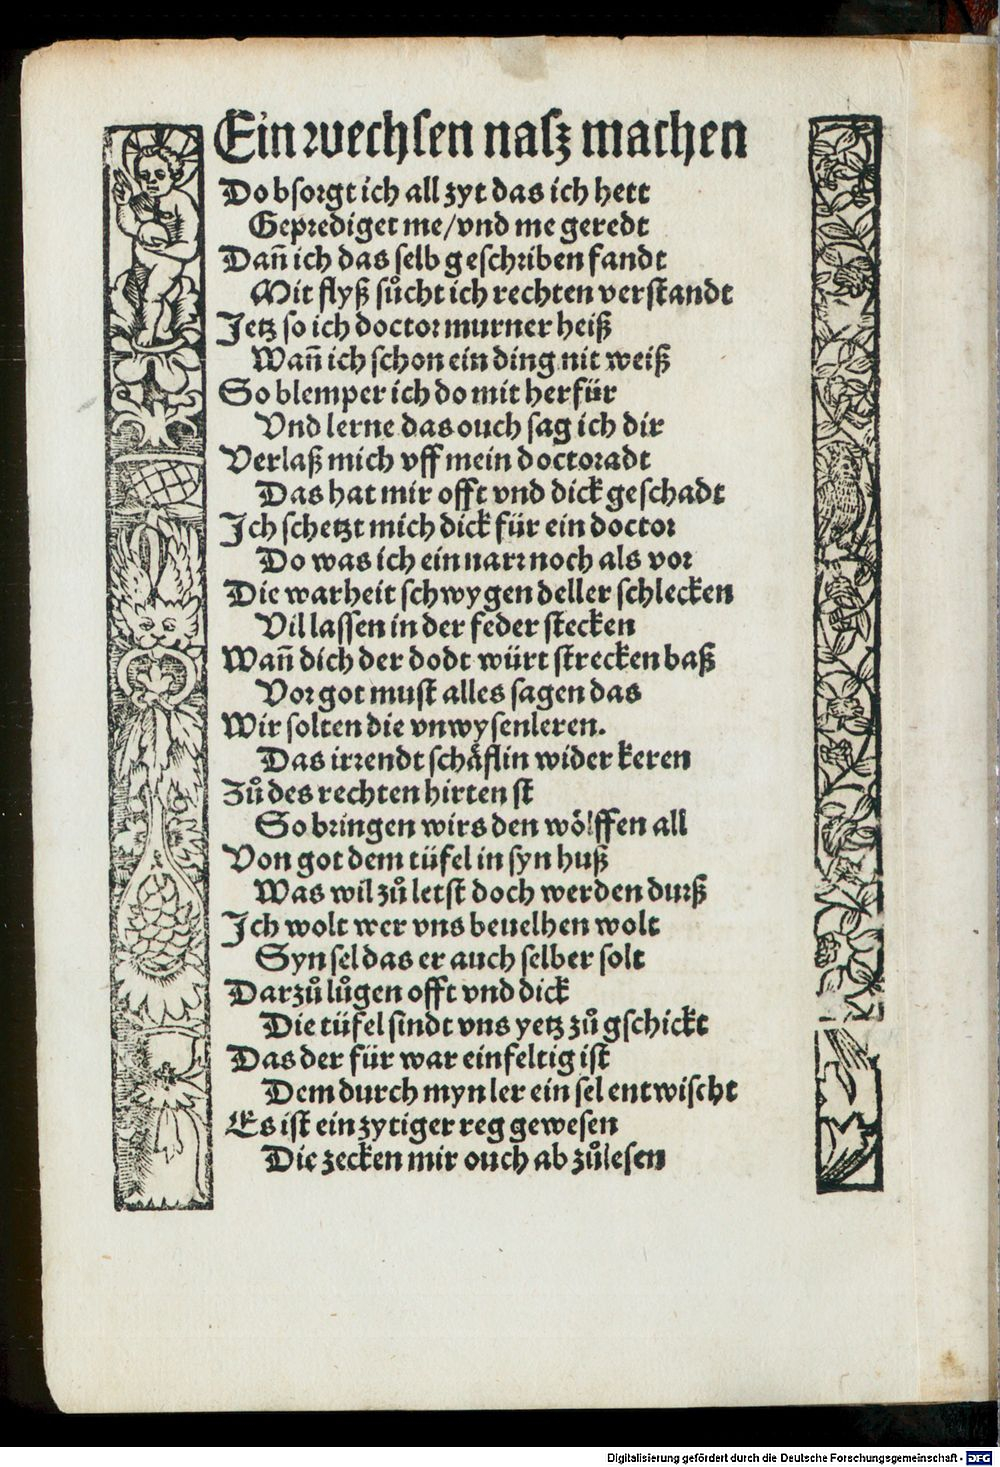 Ein wechsen nasz machen
Do bsorgt ich all zyt das ich hett
Geprediget me/vnd me geredt
Dañ ich das selb geschriben fandt
Mit flyß sůcht ich rechten verstandt
Jetz so ich doctor murner heiß
Wañ ich schon ein ding nit weiß
So blemper ich do mit herfür
Vnd lerne das ouch sag ich dir
Verlaß mich vff mein doctoradt
Das hat mir offt vnd dick geschadt
Ich schetzt mich dick für ein doctor
Do was ich ein narr noch als vor
Die warheit schwygen deller schlecken
Vil lassen in der feder stecken
Wañ dich der dodt würt strecken baß
Vor got must alles sagen das
Wir solten die vnwysen leren.
Das irrendt schäflin wider keren
Zů des rechten hirten st
So bringen wirs den wölffen all
Von got dem tüfel in syn huß
Was wil zů letst doch werden durß
Ich wolt wer vns beuelhen wolt
Syn sel das er auch selber solt
Darzů lůgen offt vnd dick
Die tüfel sindt vns yetz zů gschickt
Das der für war einfeltig ist
Dem durch myn ler ein sel entwischt
Es ist ein zytiger reg gewesen
Die zecken mir ouch ab zůlesen
Digitalisierung gefördert durch die Deutsche Forschungsgemeinschaft - DFG